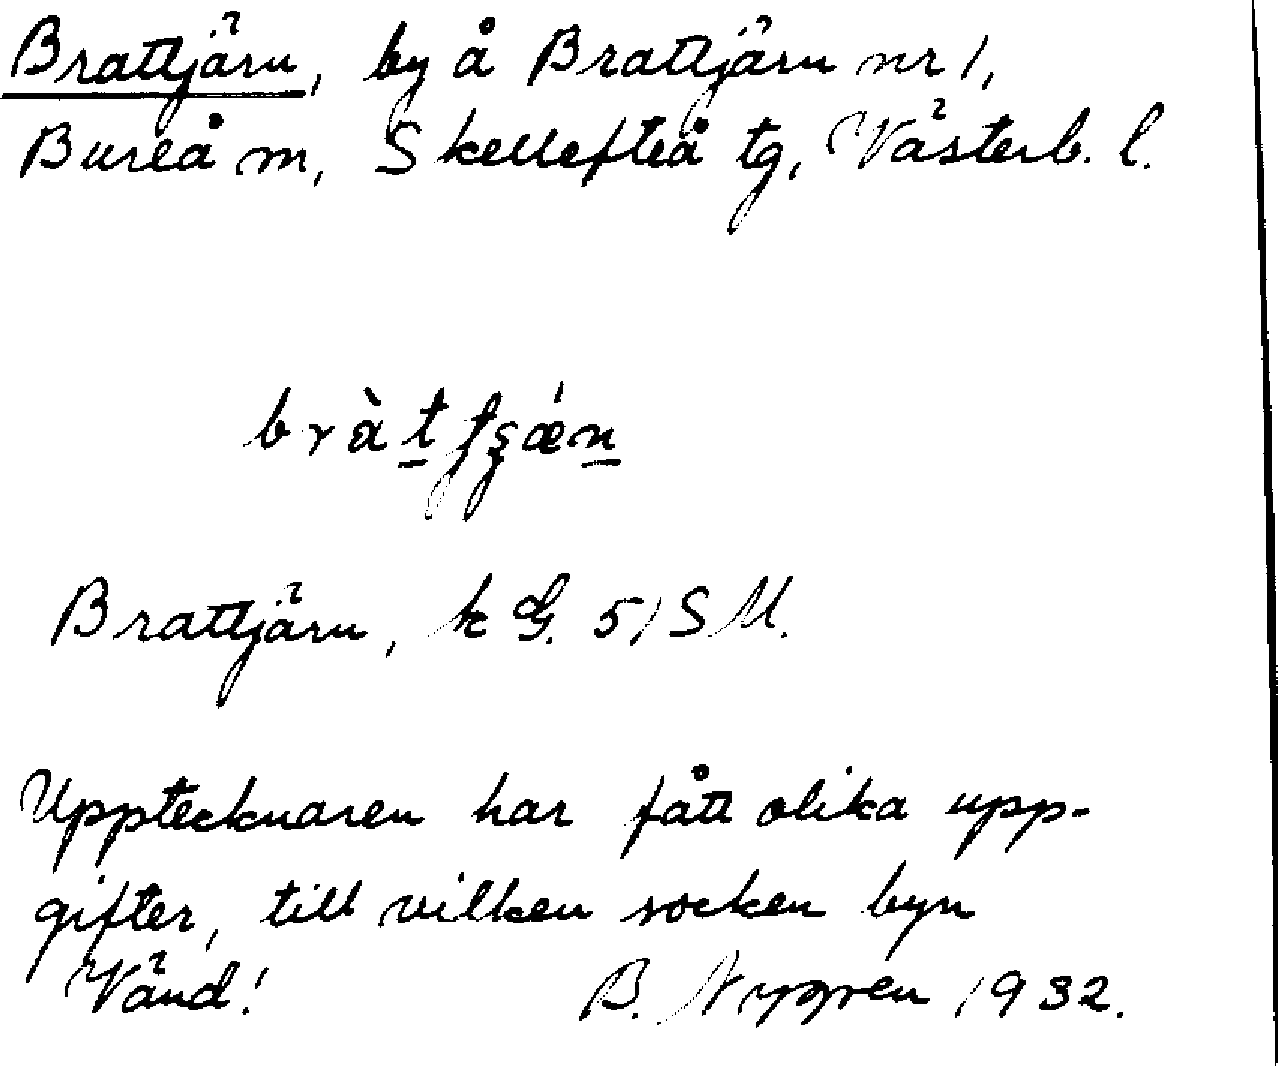 Brattjärn, by å Brattjärn nr 1,
Bureå m, Skellefteå tg, Västerb. l.
Brattjärn, k G. 51 S M.
Upptecknaren har fått olika upp-
gifter, till vilken socken byn
Vänd! B. Nygren 1932.